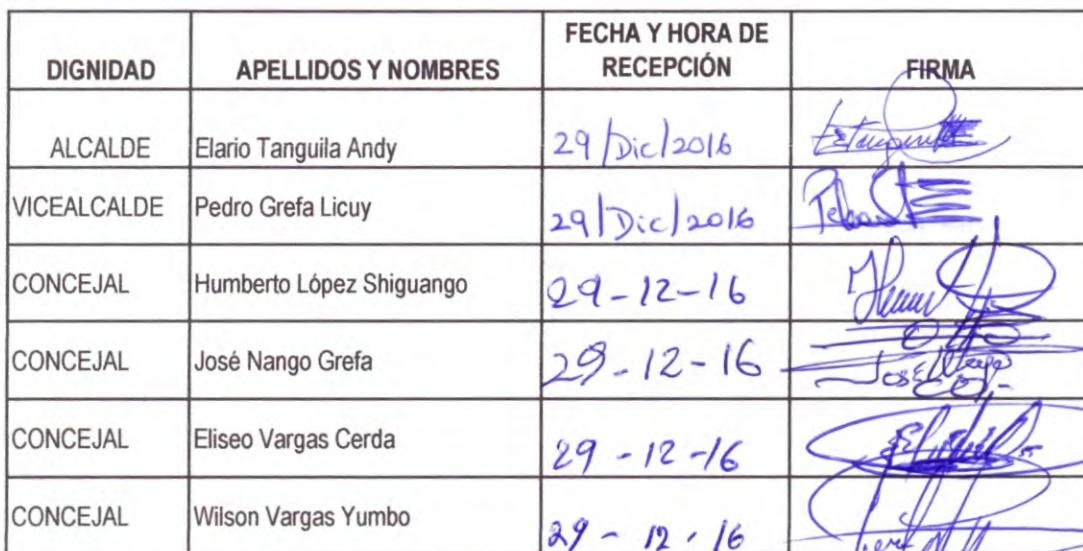 DIGNIDAD APELLIDOS Y NOMBRES FECHA Y HORA DE RECEPCIÓN FIRMA
ALCALDE Elario Tanguila Andy 29/Dic/2016
VICEALCALDE Pedro Grefa Licuy 29/Dic/2016
CONCEJAL Humberto López Shiguango 29-12-16
CONCEJAL José Nango Grefa 29-12-16 José Nango
CONCEJAL Eliseo Vargas Cerda 29-12-16
CONCEJAL Wilson Vargas Yumbo 29-12-16